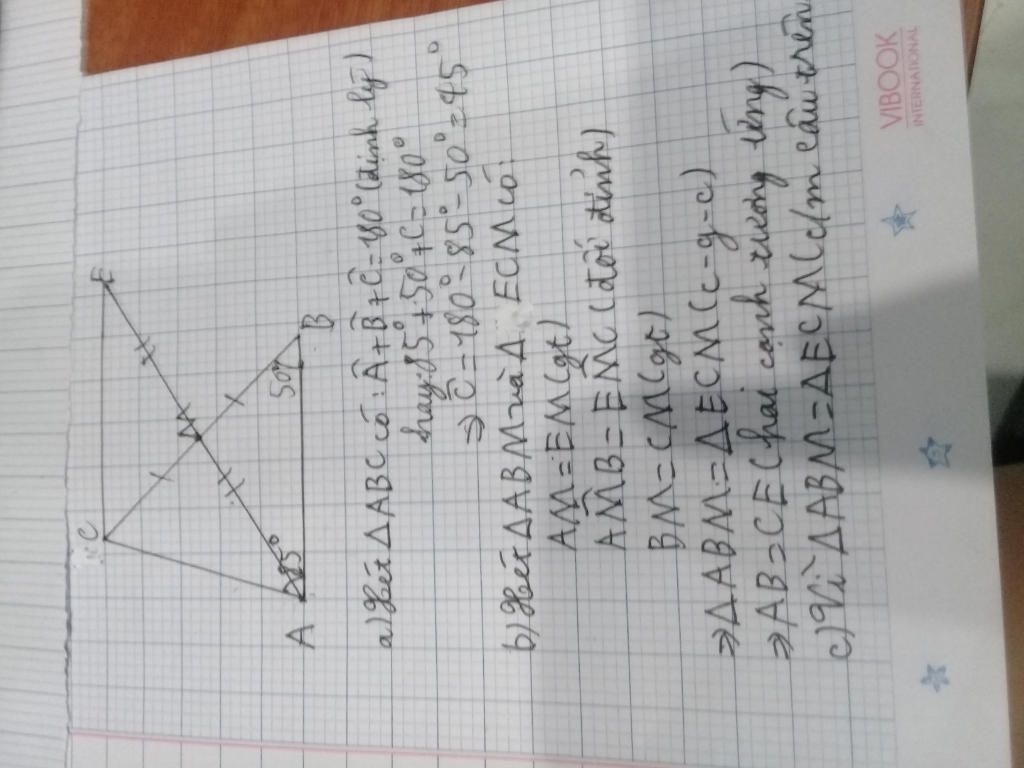 C
E
M
A
B
85°
50°
a) Xét ΔABC có: Â + B̂ + Ĉ = 180° (định lý)
hay 85° + 50° + Ĉ = 180°
⇒ Ĉ = 180° - 85° - 50° = 45°
b) Xét ΔABM và Δ ECM có:
AM = EM (gt)
AM̂B = EM̂C (đối đỉnh)
BM = CM (gt)
⇒ ΔABM = ΔECM (c-g-c)
⇒ AB = CE (hai cạnh tương ứng)
c) Vì ΔABM = ΔECM (c/m câu trên
VIBOOK
INTERNATIONAL